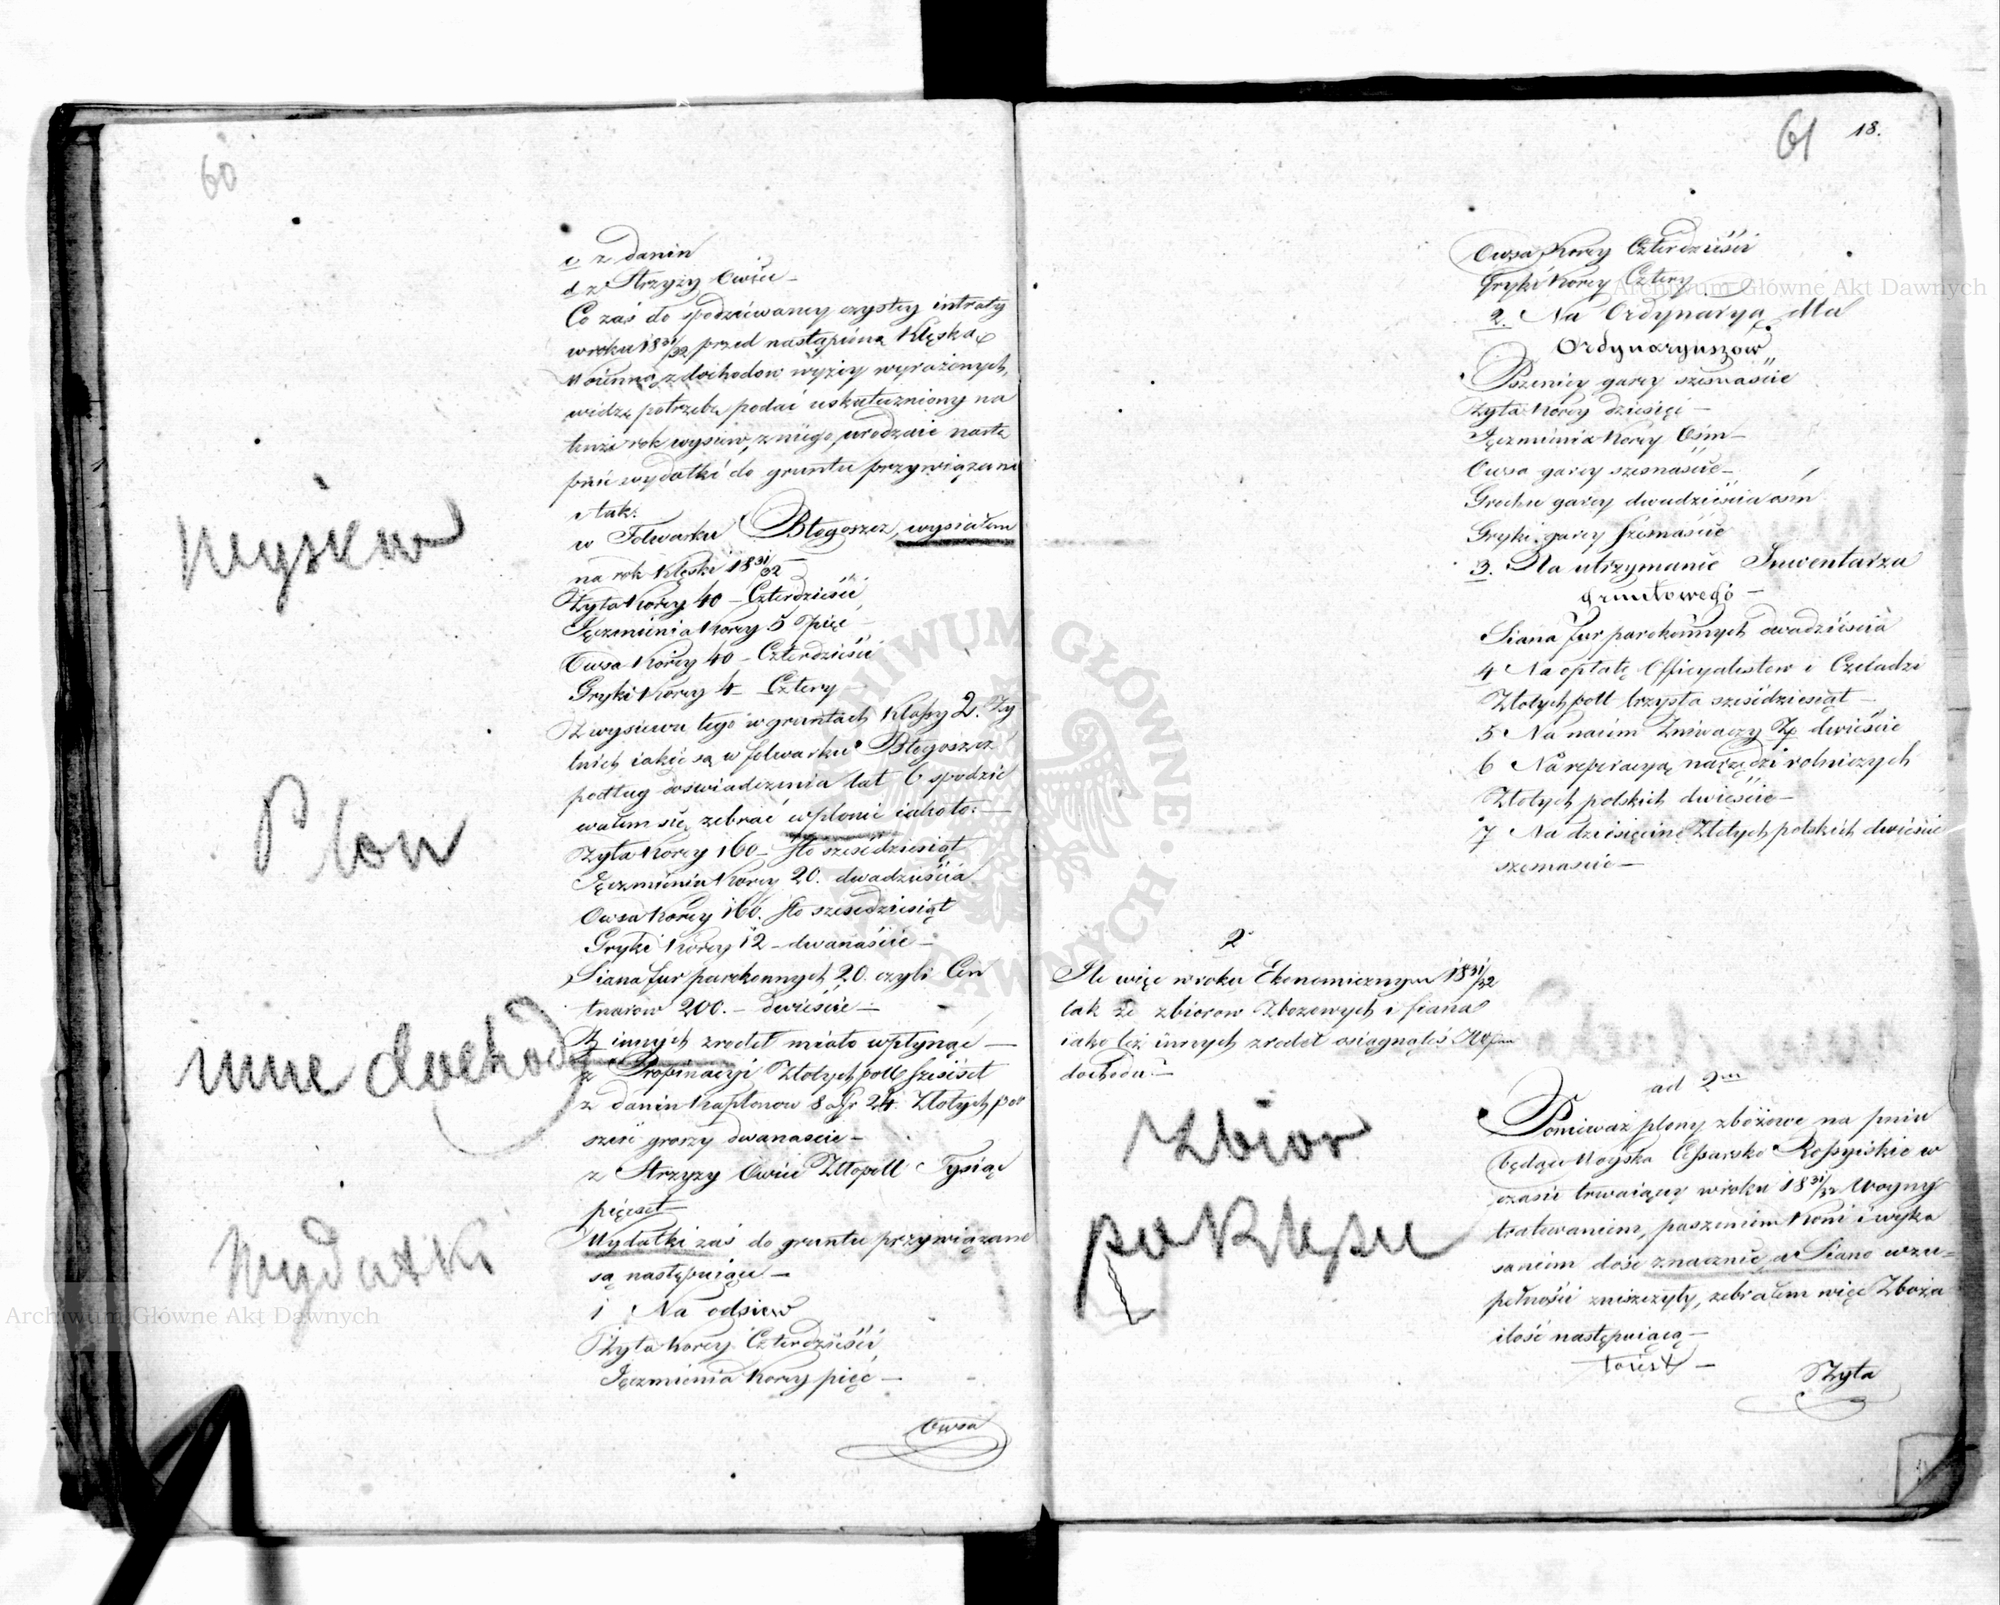 60
c z danin
d z Strzyży Owiec –
Co zaś do spodziewaney czystey intraty
w roku 18 31/32 przed nastąpioną Klęską
Woienną z dochodow wyżey wyrażonych,
widzę potrzebę podać uskuteczniony na
tenże rok wysiew, z niego urodzaie nastę
pnie wydatki do gruntu przywiązane
i tak:
w Folwarku Błogoszcz wysiałem
na rok Klęski 18 31/32
Żyta Korcy 40 – Czterdzieści
Jęczmienia Korcy 5 Pięć –
Owsa Korcy 40 – Czterdzieści
Gryki Korcy 4 – Cztery –
Z wysiewu tego w gruntach Klassy 2. Ży
tnich iakie są w folwarku Błogoszcz
podług doświadczenia lat 6 spodzie
wałem się zebrać w plonie iakoto: –
Żyta Korcy 160 – Sto szesdziesiąt
Jęczmienia Korcy 20. dwadzieścia
Owsa Korcy 160. Sto szesdziesiąt
Gryki Korcy 12 – dwanaście –
Siana fur parokonnych 20. czyli Cen
tnarow 200. – dwieście –
Z innych zrodeł miało wpłynąć –
z Propinacyi Złotych poll sześćset
z danin Kapłonow 8 gr 24. Złotych pol
sześć groszy dwanaście –
z Strzyży Owiec Złtopoll Tysiąc
pięćset –
Wydatki zaś do gruntu przywiązane
są następuiące –
1 Na odsiew
Żyta Korcy Czterdzieści
Jęczmienia Korcy pięć –
Owsa
Wysiew
Plon
inne dochody
Wydatki
61
18.
Owsa Korcy Czterdzieści
Gryki Korcy Cztery
2. Na Ordynaryą dla
Ordynaryuszow
Pszenicy garcy szesnaście
Żyta Korcy dziesięć –
Jęczmienia Korcy Ośm –
Owsa garcy szesnaście –
Grochu garcy dwadzieścia ośm
Gryki garcy szesnaście
3. Na utrzymanie Inwentarza
gruntowego –
Siana fur parokonnych dwadzieścia
4 Na opłatę Officyalistow i Czeladzi
Złotych poll trzysta sześćdziesiąt –
5 Na naiem Żniwiarzy Zł dwieście
6 Na reperacyą narzędzi rolniczych
Złotych polskich dwieście –
7 Na dziesięcinę Złotych polskich dwieście
szesnaście –
2
Ile więc w roku Ekonomicznym 18 31/32
tak ze zbiorow Zbozowych i siana
iako też innych zrodeł osiągnąłeś
dochodu –
Zbior
po Klęsce
ad 2um
Ponieważ plony zbożowe na pniu
będące Woyska Cesarsko Rossyiskie w
czasie trwaiącey w roku 18 31/32 Woyny
tratowaniem, paszeniem Koni i wyka
saniem dość znacznie, a Siano w zu=
pełności zniszczyły, zebrałem więc Zboża
ilość następuiącą –
toiest –
Żyta
Archiwum Główne Akt Dawnych
Archiwum Główne Akt Dawnych
ARCHIWUM GŁÓWNE AKT DAWNYCH